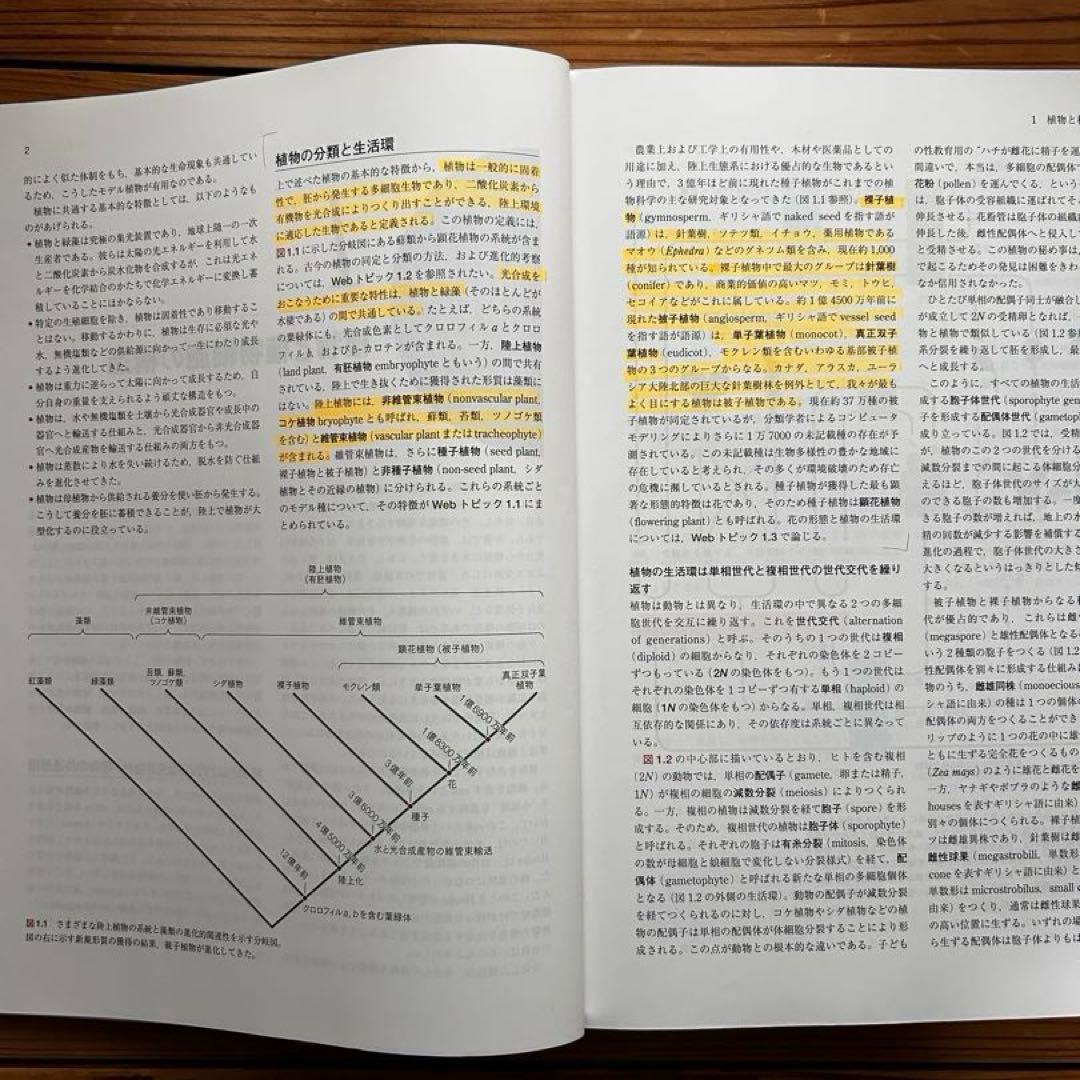 2
的によく似た体制をもち、基本的な生命現象も共通してい
るため、こうしたモデル植物が有用なのである。
植物に共通する基本的な特徴としては、以下のようなも
のがあげられる。
• 植物と緑藻は究極の集光装置であり、地球上随一の一次
生産者である。彼らは太陽の光エネルギーを利用して水
と二酸化炭素から炭水化物を合成するが、これは光エネ
ルギーを化学結合のかたちで化学エネルギーに変換し蓄
積していることにほかならない。
• 特定の生殖細胞を除き、植物は固着性であり移動するこ
とはない。移動するかわりに、植物は生存に必須な光や
水、無機塩類などの供給源に向かって一生にわたり成長
するよう進化してきた。
• 植物は重力に逆らって太陽に向かって成長するため、自
分自身の重量を支えられるよう頑丈な構造をもつ。
• 植物は、水や無機塩類を土壌から光合成器官や成長中の
器官へと輸送する仕組みと、光合成器官から非光合成器
官へ光合成産物を輸送する仕組みの両方をもつ。
• 植物は蒸散により水を失い続けるため、脱水を防ぐ仕組
みを進化させてきた。
• 植物は母植物から供給される養分を使い胚から発生する。
こうして養分を胚に蓄積できることが、陸上で植物が大
型化するのに役立っている。
植物の分類と生活環
上で述べた植物の基本的な特徴から、植物は一般的に固着
性で、胚から発生する多細胞生物であり、二酸化炭素から
有機物を光合成によりつくり出すことができる、陸上環境
に適応した生物であると定義される。この植物の定義には、
図1.1に示した分岐図にある蘚類から顕花植物の系統が含ま
れる。古今の植物の同定と分類の方法、および進化的考察
については、Webトピック1.2を参照されたい。光合成を
おこなうために重要な特性は、植物と緑藻(そのほとんどが
水棲である)の間で共通している。たとえば、どちらの系統
の葉緑体にも、光合成色素としてクロロフィルaとクロロ
フィルb、およびβ-カロテンが含まれる。一方、陸上植物
(land plant, 有胚植物 embryophyteともいう)の間で共有
されている、陸上で生き抜くために獲得された形質は藻類に
はない。陸上植物には、非維管束植物(nonvascular plant,
コケ植物 bryophyteとも呼ばれ、蘚類、苔類、ツノゴケ類
を含む)と維管束植物(vascular plantまたはtracheophyte)
が含まれる。維管束植物は、さらに種子植物(seed plant,
裸子植物と被子植物)と非種子植物(non-seed plant, シダ
植物とその近縁の植物)に分けられる。これらの系統ごと
のモデル種について、その特徴がWebトピック1.1にま
とめられている。
陸上植物
(有胚植物)
藻類
非維管束植物
(コケ植物)
維管束植物
顕花植物(被子植物)
紅藻類
緑藻類
苔類、蘚類、
ツノゴケ類
シダ植物
裸子植物
モクレン類
単子葉植物
真正双子葉
植物
1億6900万年前
1億8300万年前
花
3億年前
種子
3億6000万年前
水と光合成産物の維管束輸送
4億5000万年前
陸上化
12億年前
クロロフィルa, bを含む葉緑体
図1.1 さまざまな陸上植物の系統と藻類の進化的関連性を示す分岐図。
図の右に示す新規形質の獲得の結果、被子植物が進化してきた。
1 植物と
農業上および工学上の有用性や、木材や医薬品としての
用途に加え、陸上生態系における優占的な生物であるとい
う理由で、3億年ほど前に現れた種子植物がこれまでの植
物科学の主な研究対象となってきた(図1.1参照)。裸子植
物(gymnosperm, ギリシャ語でnaked seedを指す語が
語源)は、針葉樹、ソテツ類、イチョウ、薬用植物である
マオウ(Ephedra)などのグネツム類を含み、現在約1,000
種が知られている。裸子植物中で最大のグループは針葉樹
(conifer)であり、商業的価値の高いマツ、モミ、トウヒ、
セコイアなどがこれに属している。約1億4500万年前に
現れた被子植物(angiosperm, ギリシャ語でvessel seed
を指す語が語源)は、単子葉植物(monocot)、真正双子
葉植物(eudicot)、モクレン類を含むいわゆる基部被子植
物の3つのグループからなる。カナダ、アラスカ、ユーラ
シア大陸北部の巨大な針葉樹林を例外として、我々が最も
よく目にする植物は被子植物である。現在約37万種の被
子植物が同定されているが、分類学者によるコンピュータ
モデリングによりさらに1万7000の未記載種の存在が予
測されている。この未記載種は生物多様性の豊かな地域に
存在していると考えられ、その多くが環境破壊のため存亡
の危機に瀕しているとされる。種子植物が獲得した最も顕
著な形態的特徴は花であり、そのため種子植物は顕花植物
(flowering plant)とも呼ばれる。花の形態と植物の生活環
については、Webトピック1.3で論じる。
植物の生活環は単相世代と複相世代の世代交代を繰り
返す
植物は動物とは異なり、生活環の中で異なる2つの多細
胞世代を交互に繰り返す。これを世代交代(alternation
of generations)と呼ぶ。そのうちの1つの世代は複相
(diploid)の細胞からなり、それぞれの染色体を2コピー
ずつもっている(2Nの染色体をもつ)。もう1つの世代は
それぞれの染色体を1コピーずつ有する単相(haploid)の
細胞(1Nの染色体をもつ)からなる。単相、複相世代は相
互依存的な関係にあり、その依存度は系統ごとに異なって
いる。
図1.2の中心部に描いているとおり、ヒトを含む複相
(2N)の動物では、単相の配偶子(gamete, 卵または精子,
1N)が複相の細胞の減数分裂(meiosis)によりつくられ
る。一方、複相の植物は減数分裂を経て胞子(spore)を形
成する。そのため、複相世代の植物は胞子体(sporophyte)
と呼ばれる。それぞれの胞子は有糸分裂(mitosis, 染色体
の数が母細胞と娘細胞で変化しない分裂様式)を経て、配
偶体(gametophyte)と呼ばれる新たな単相の多細胞個体
となる(図1.2の外側の生活環)。動物の配偶子が減数分裂
を経てつくられるのに対し、コケ植物やシダ植物などの植
物の配偶子は単相の配偶体が体細胞分裂することにより形
成される。この点が動物との根本的な違いである。子ども
の性教育用の“ハチが雌花に精子を運
間違いで、本当は、多細胞の配偶体
花粉(pollen)を運んでくる、という
は、胞子体の受容組織に運ばれてそ
伸長させる。花粉管は胞子体の組織
伸長した後、雌性配偶体へと侵入して
と受精させる。この植物の秘め事は、
で起こるためその発見は困難をきわ
なか信用されなかった。
ひとたび単相の配偶子同士が融合し
が成立して2Nの受精卵となれば、
物と植物で類似している(図1.2参
系分裂を繰り返して胚を形成し、最
へと成長する。
このように、すべての植物の生活
成する胞子体世代(sporophyte gen
子を形成する配偶体世代(gametop
成り立っている。図1.2では、受精
が、植物のこの2つの世代を分ける
減数分裂までの間に起こる体細胞分
えるほど、胞子体世代のサイズが大
のできる胞子の数も増加する。一度
きる胞子の数が増えれば、地上の水
精の回数が減少する影響を補償する
進化の過程で、胞子体世代の大きさ
大きくなるというはっきりとした傾
する。
被子植物と裸子植物からなる
代が優占的であり、これらは雌
(megaspore)と雄性配偶体となる
いう2種類の胞子をつくる(図1.2
性配偶体を別々に形成する仕組み
物のうち、雌雄同株(monoecious
シャ語に由来)の種は1つの個体
配偶体の両方をつくることができ
リップのように1つの花の中に雄
ともに生ずる完全花をつくるもの
(Zea mays)のように雄花と雌花を
一方、ヤナギやポプラのような雌
housesを表すギリシャ語に由来)
別々の個体につくられる。裸子植
ツは雌雄異株であり、針葉樹は雌
雌性球果(megastrobili, 単数形
coneを表すギリシャ語に由来)と
単数形はmicrostrobilus, small c
由来)をつくり、通常は雌性球果
の高い位置に生ずる。いずれの場
ら生ずる配偶体は胞子体よりもは